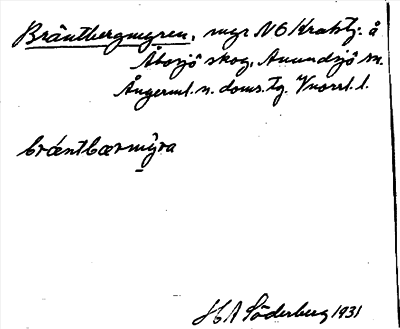 Bräntbergmyren, myr NO Kroktj. å
Åbosjö skog, Anundsjö sn.
Ångerml. n. doms. tg. Vnorrl. l.
bräntbærmy̱ra
H A Söderberg 1931